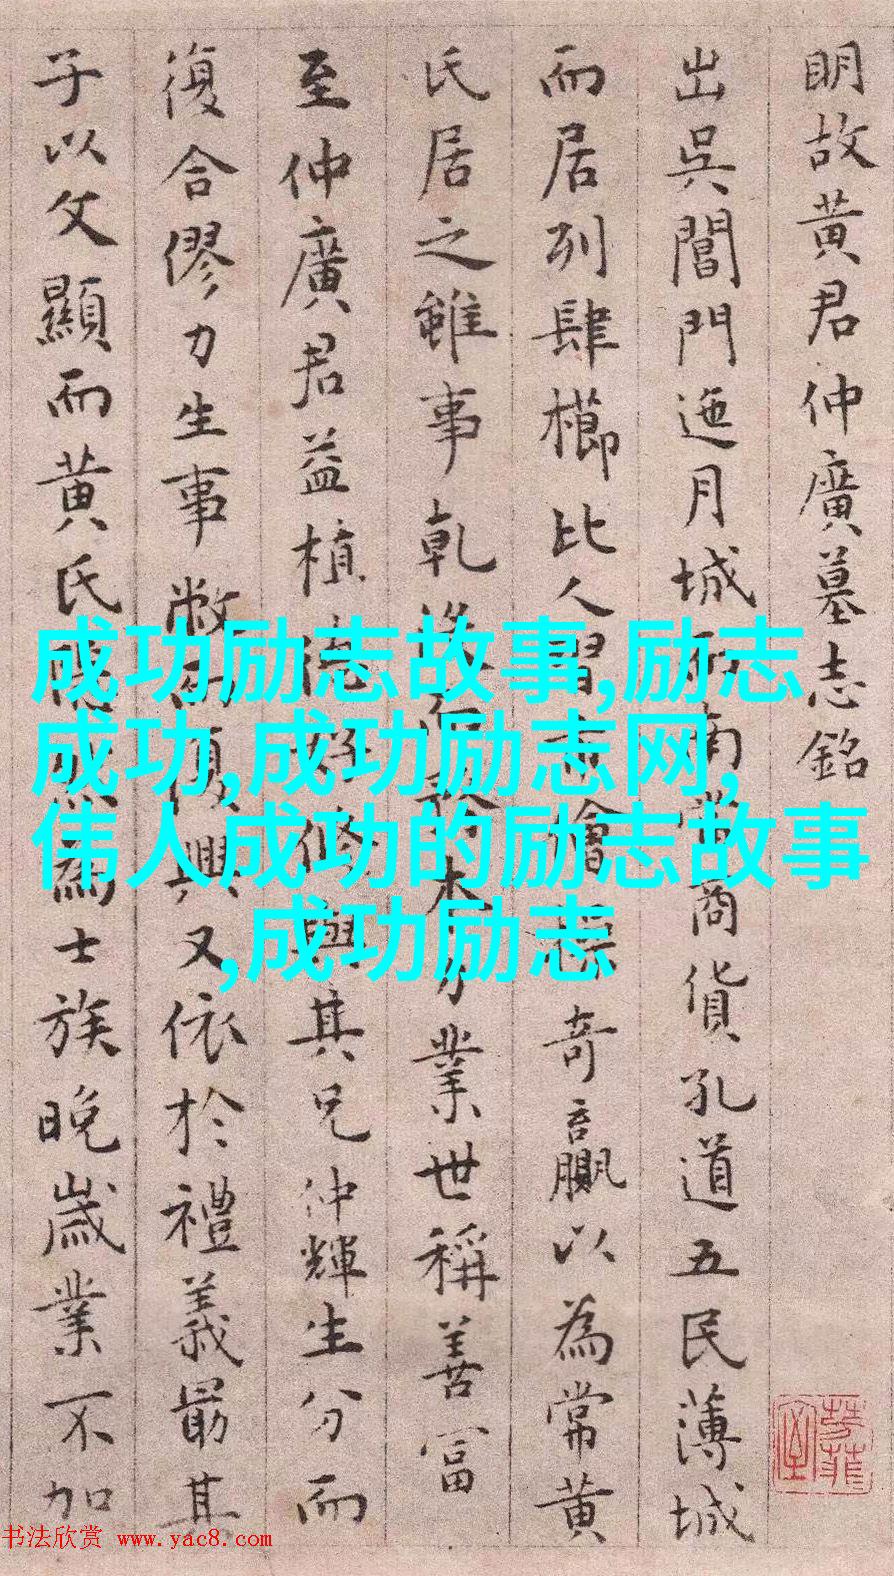 明故黄君仲廣墓志銘
出吳閶門迤月城而南當商貨孔道五民薄城
而居列肆櫛比人習市儈操奇贏以為常黄
氏居之雖事乾没而務本力業世稱善富
至仲廣君益植德好修與其兄仲輝生分而
復合僇力生事敝而復興又依於禮義最其
子以文顯而黄氏隱然為士族晚嵗業不加
成功励志故事,励志
成功,成功励志网,
伟人成功的励志故事
,成功励志
书法欣赏 www.yac8.com